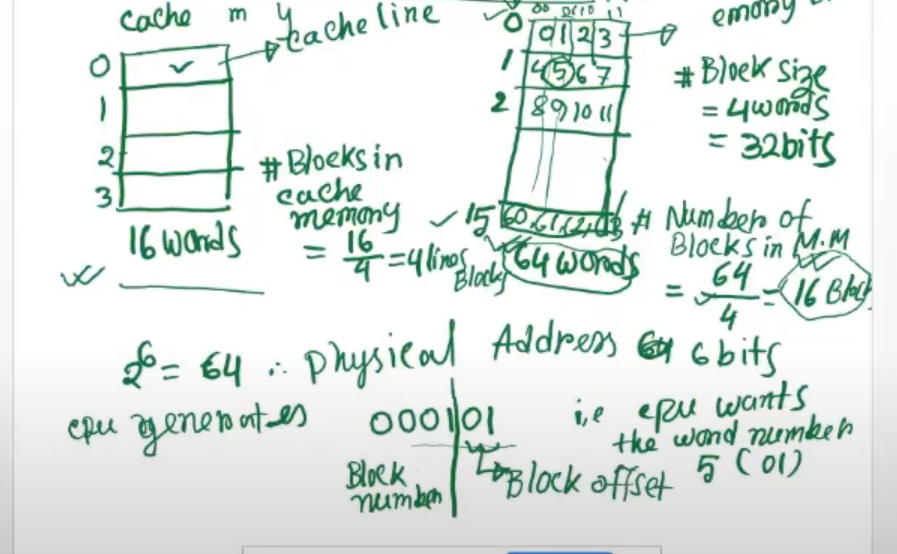 cache m y
cache line
0
1
2
3
16 words
# Blocks in
cache
memory
= 16/4 = 4 lines
Blocks
00 01 10 11
0 0 1 2 3
1 4 5 6 7
2 8 9 10 11
15 60, 61, 62, 63
64 words
emory
# Block size
= 4 words
= 32 bits
# Number of
Blocks in M.M
= 64/4 = 16 Block
2^6 = 64 ∴ physical Address 6 bits
cpu generates 0001|01 i,e cpu wants
the word number
5 (01)
Block
number
Block offset